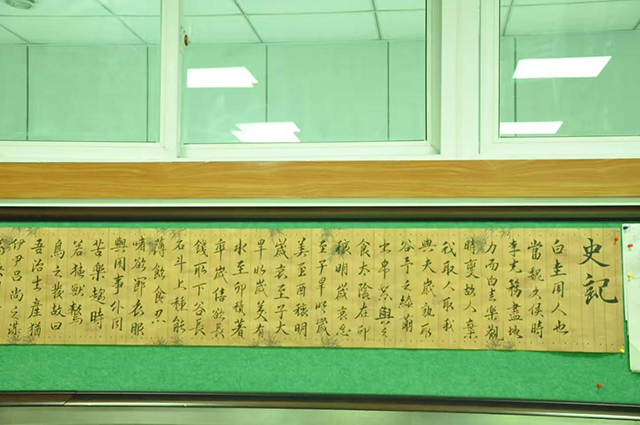 史記
白圭周人也
當魏文侯時
李克務盡地
力而白圭樂觀
時變故人棄
我取人取我
與夫歲孰取
谷予之絲繭
出帛絮與之
食太陰在卯
穰明歲衰惡
至午旱明歲
美至酉穰明
歲衰至子大
旱明歲美有
水至卯積著
率歲倍欲長
錢取下谷長
石斗上種能
薄飲食忍
嗜欲節衣服
與用事僮同
苦樂趨時
若猛獸鷙
鳥之發故曰
吾治生產猶
伊尹呂尚之謀